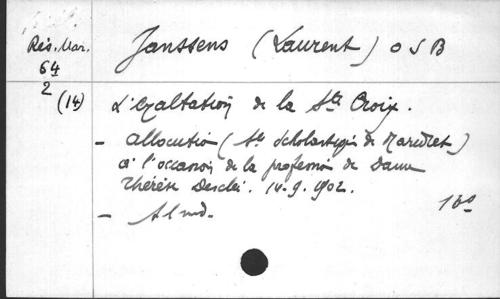 Rés. Mar.
64
2
(14)
Janssens (Laurent) O S B
L'exaltation de la Ste Croix.
- Allocution (Ste Scholastique de Maredret)
à l'occasion de la profession de Dame
Thérèse Desclée. 14-9-1902.
- S l nd.
16°